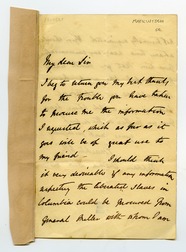 My dear Sir
I beg to return you my best thanks
for the trouble you have taken
to procure me the information
I requested, which as far as it
goes will be of great use to
my friend — I should think
it very desirable if any information
respecting the liberated Slaves in
Columbia could be procured from
General Miller with whom I am